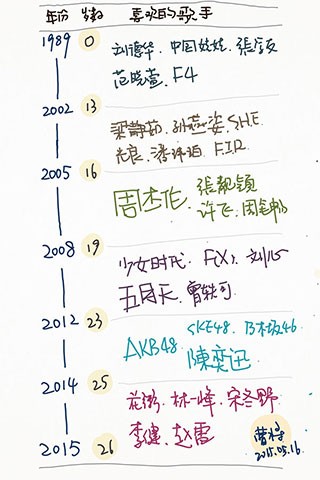 年份 岁数 喜欢的歌手
1989 0
刘德华、中国娃娃、張韶涵
范晓萱、F4
2002 13
梁静茹、孙燕姿、S.H.E
光良、潘玮柏、F.I.R
2005 16
周杰伦、張靓颖
许飞、周笔畅
2008 19
少女时代、F(X)、刘心
五月天、曾轶可
2012 23
SKE48、乃木坂46
AKB48、陳奕迅
2014 25
花粥、林一峰、宋冬野
李健、赵雷
2015 26
2015.05.16